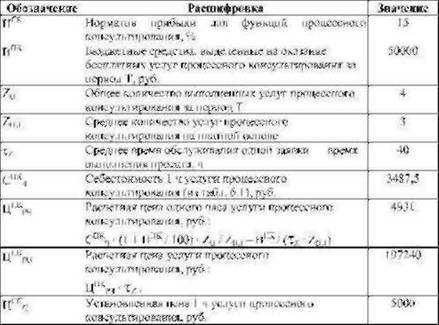 Обозначение Расшифровка Значение
П^ПК Норматив прибыли для функций процессного консультирования, % 15
В^ПК Бюджетные средства, выделенные на оказание бесплатных услуг процессного консультирования за период Т, руб. 50000
Z_О Общее количество выполненных услуг процессного консультирования за период Т 4
Среднее количество услуг процессного консультирования на платной основе 3
τ_Z Среднее время обслуживания одной заявки время выполнения проекта, ч 40
С^ПК_Ч Себестоимость 1 ч услуги процессного консультирования (из табл. 6.1), руб. 3487,5
Расчетная цена одного часа услуги процессного консультирования, руб.: 4931
Расчетная цена услуги процессного консультирования, руб.: 197240
Установленная цена 1 ч услуги процессного консультирования, руб. 5000